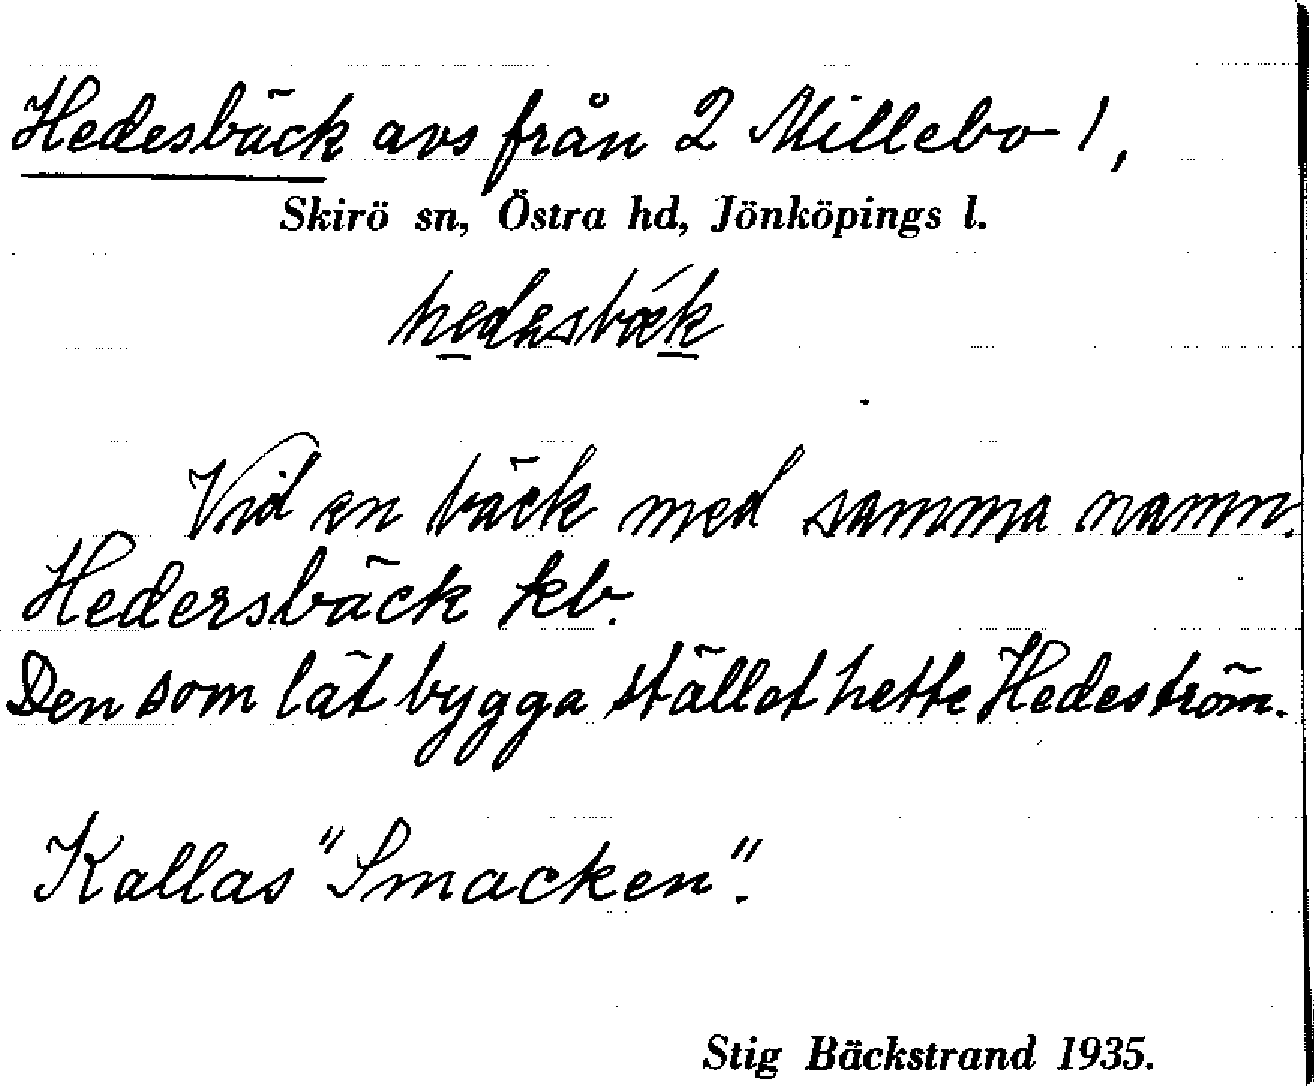 Hedesbäck avs från 2 Millebo 1,
Skirö sn, Östra hd, Jönköpings l.
hedesbæk
Vid en bäck med samma namn.
Hedersbäck kb.
Den som lät bygga stället hette Hedeström.
Kallas "Smacken".
Stig Bäckstrand 1935.